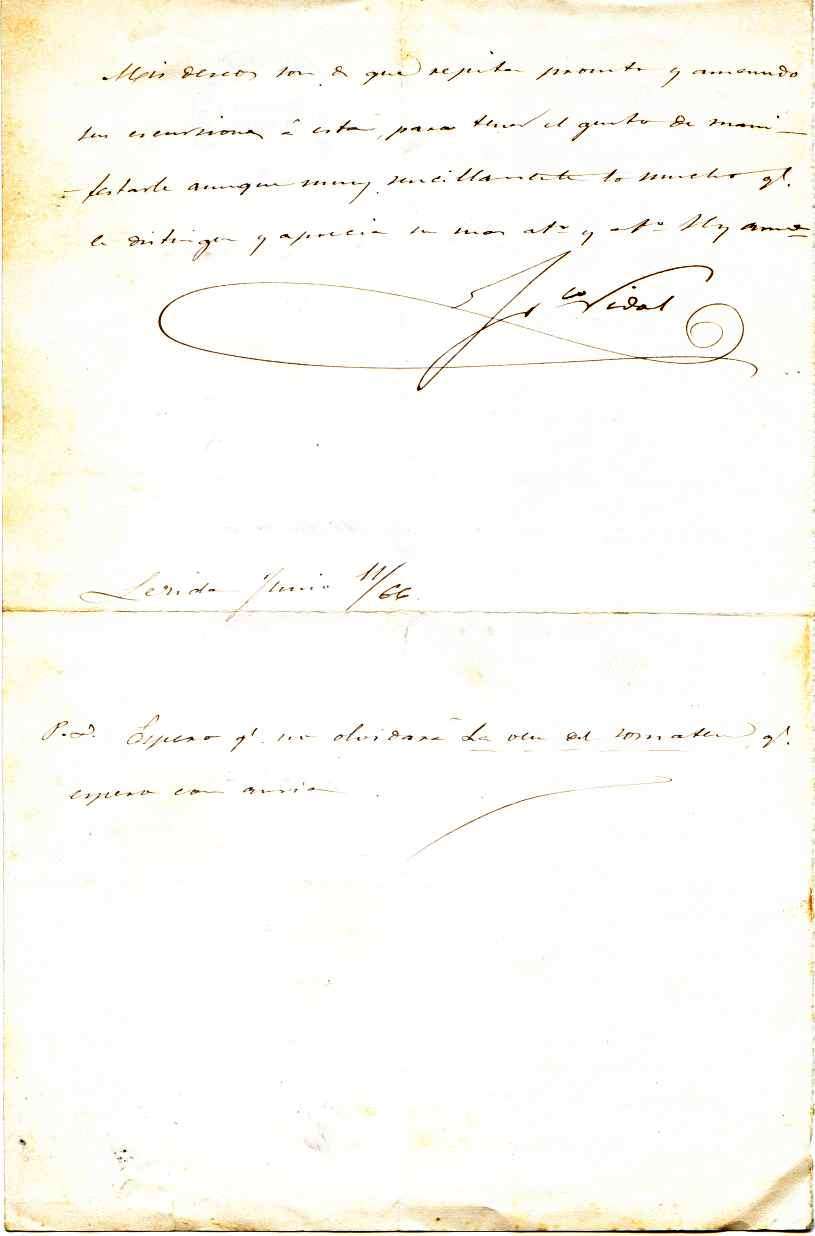 Mis deseos son de que repita pronto y amenudo
sus escursiones á esta, para tener el gusto de mani-
-festarle aunque muy sencillamente lo mucho q.
le distingue y aprecia su mas at.º y af.º S y am.º
Fr.co Vidal
Lerida Junio 11/66.
P.D. Espero q. no olvidará La veu del somaten q.
espero con ansia.